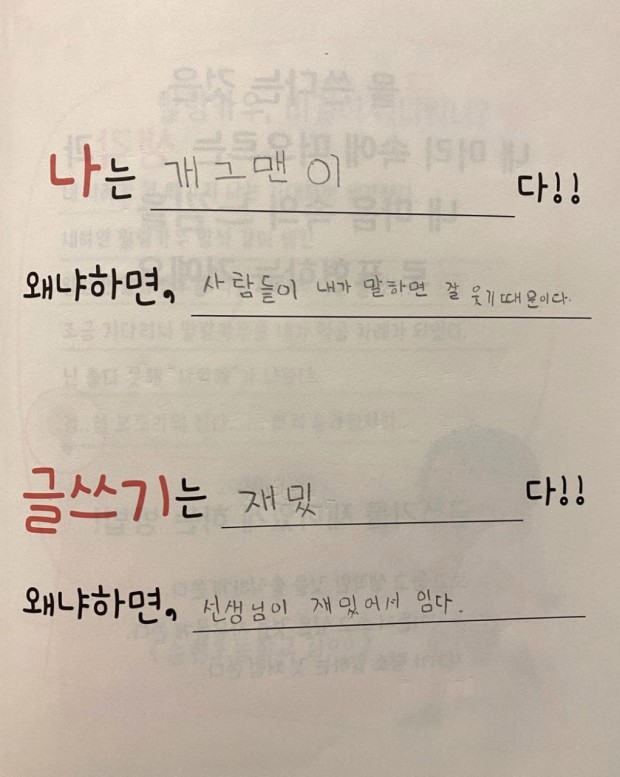 나는 개그맨이 다!!
왜냐하면, 사람들이 내가 말하면 잘 웃기때문이다.
글쓰기는 재밌 다!!
왜냐하면, 선생님이 재밌어서 임다.